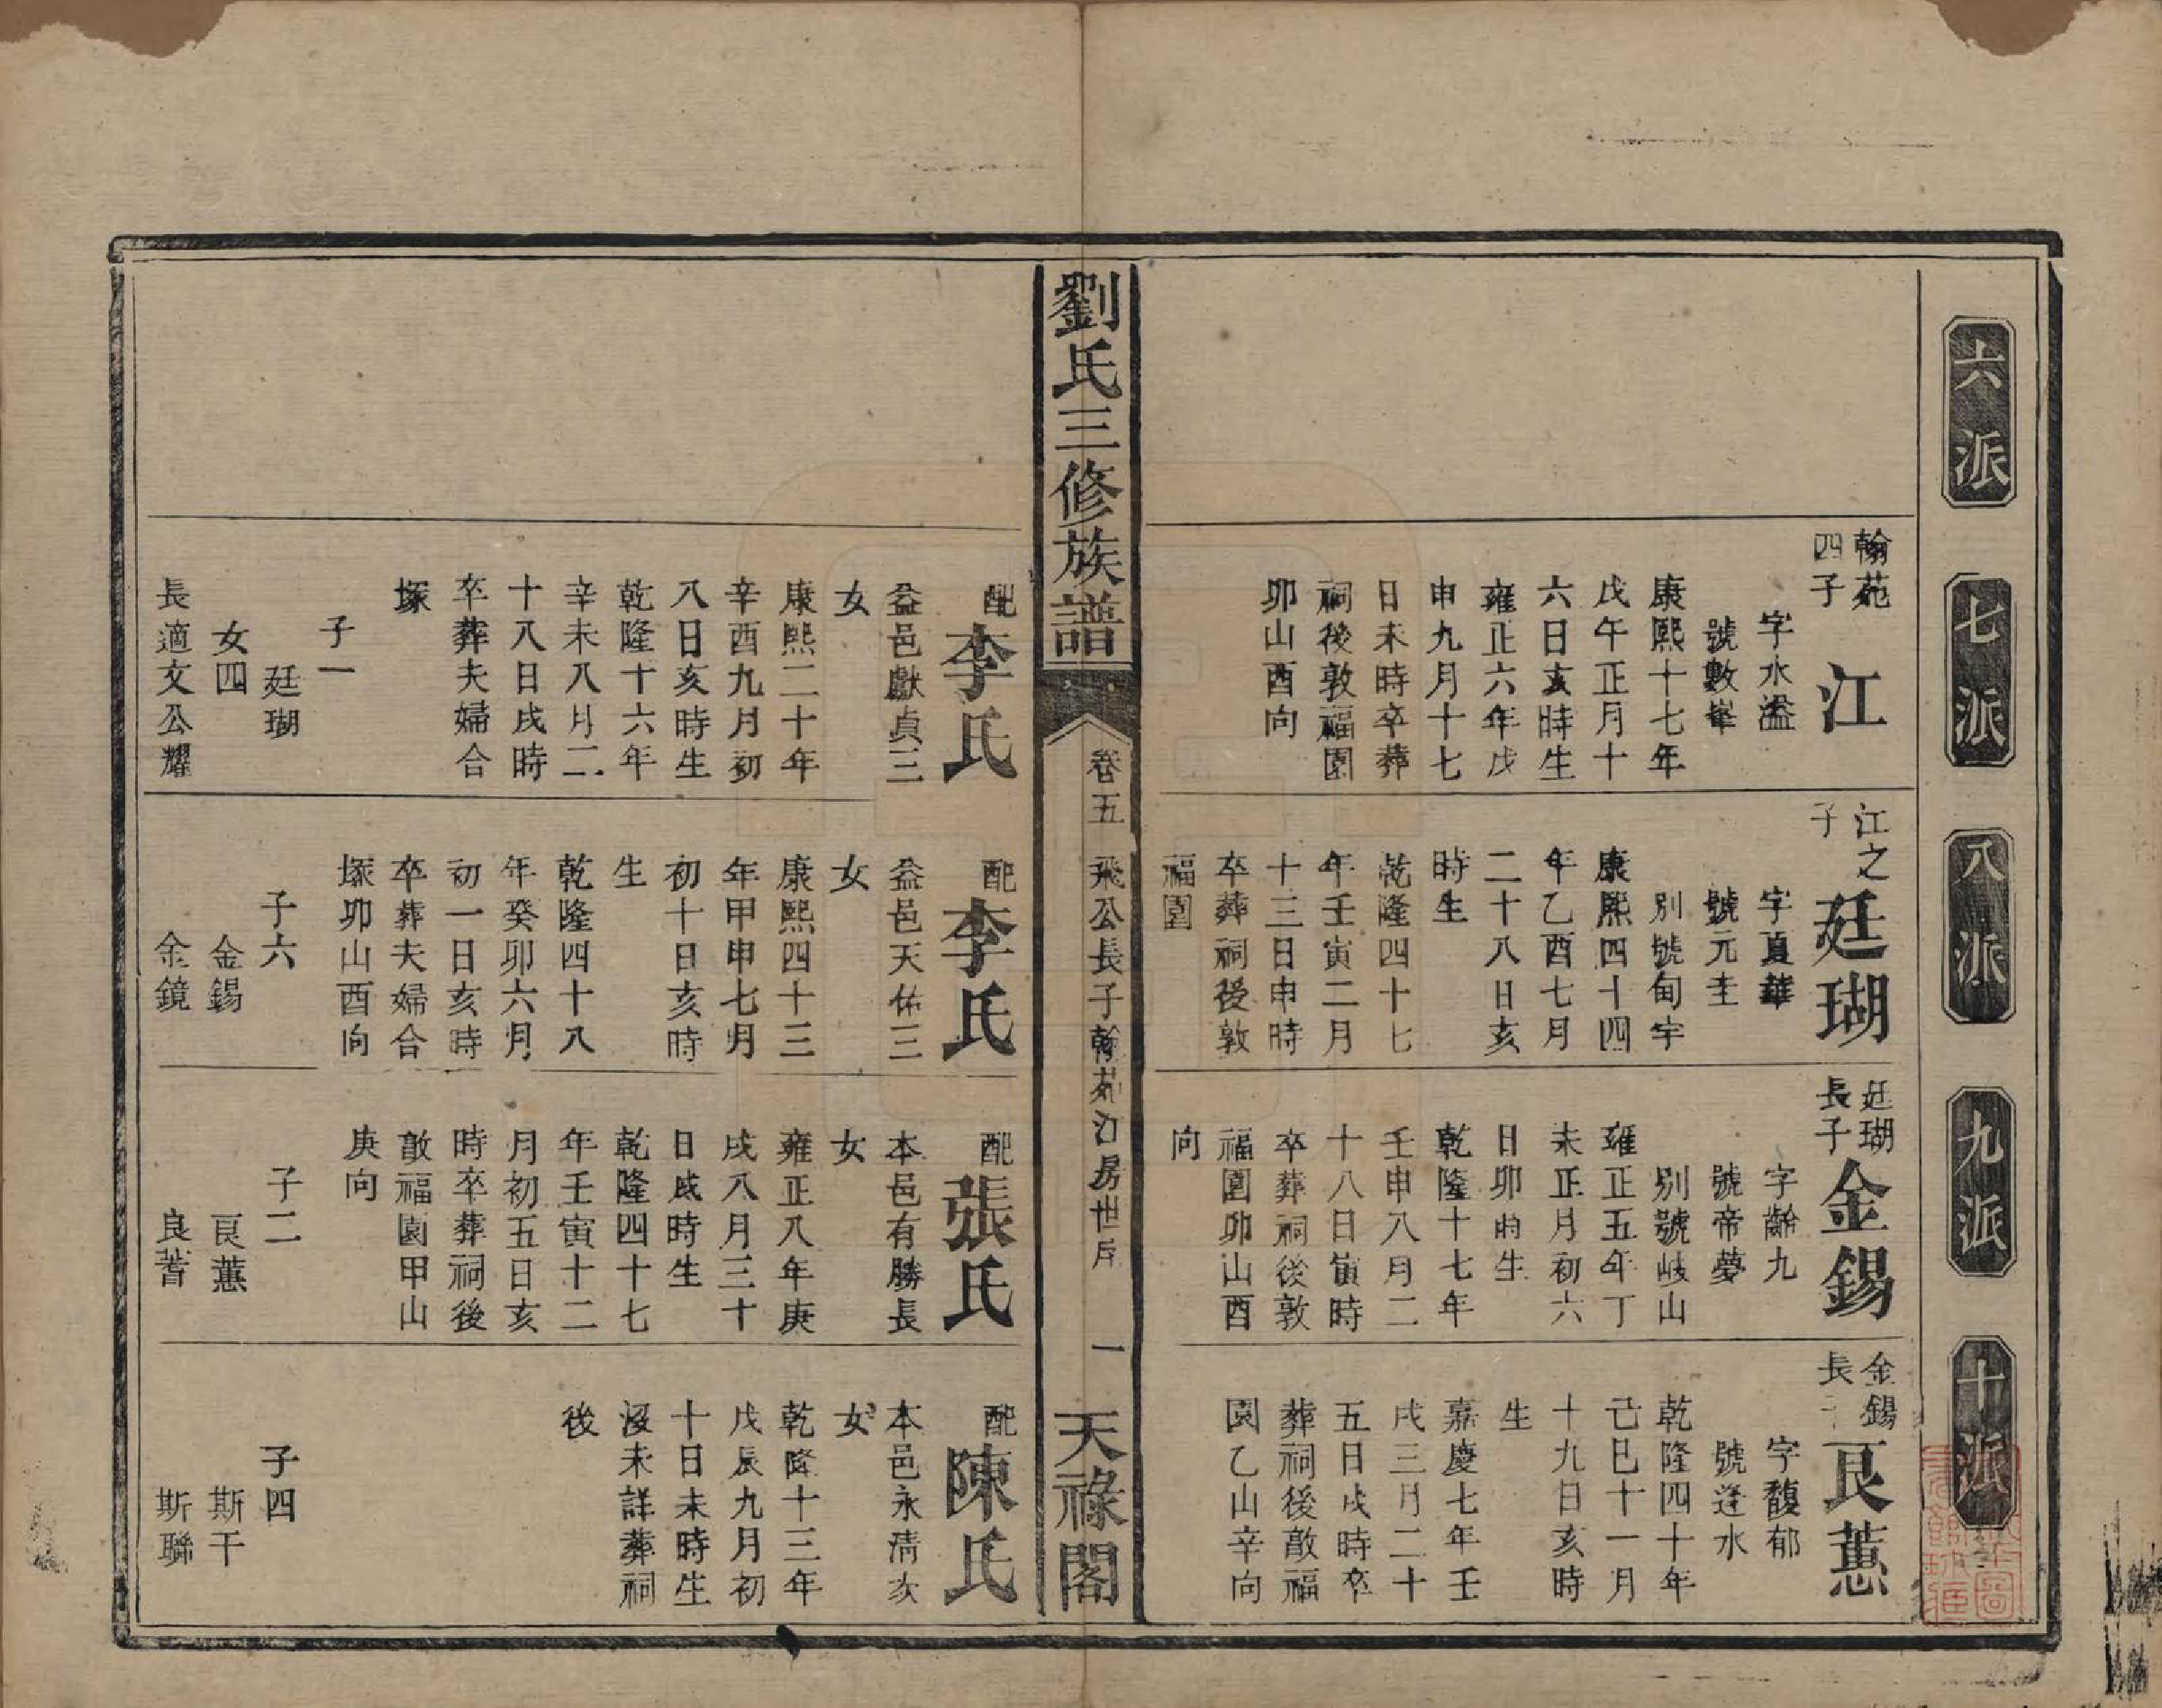 六派
七派
八派
九派
十派
翰苑
四子
江
字水溢
號數峯
康熙十七年
戊午正月十
六日亥時生
雍正六年戊
申九月十七
日未時卒葬
祠後敦福園
卯山酉向
江之
子
廷瑚
字夏華
號元圭
別號甸宇
康熙四十四
年乙酉七月
二十八日亥
時生
乾隆四十七
年壬寅二月
十三日申時
卒葬祠後敦
福園
廷瑚
長子
金錫
字齡九
號帝夢
別號岐山
雍正五年丁
未正月初六
日卯時生
乾隆十七年
壬申八月二
十八日寅時
卒葬祠後敦
福園卯山酉
向
金錫
長子
艮蕙
字馥郁
號逢水
乾隆四十年
己巳十一月
十九日亥時
生
嘉慶七年壬
戌三月二十
五日戌時卒
葬祠後敵福
園乙山辛向
劉氏三修族譜
卷五
飛公長子翰苑江房世斥
一
天祿閣
配
李氏
益邑獻貞三
女
康熙二十年
辛酉九月初
八日亥時生
乾隆十六年
辛未八月二
十八日戌時
卒葬夫婦合
塚
子一
廷瑚
女四
長適文公耀
配
李氏
益邑天佑三
女
康熙四十三
年甲申七月
初十日亥時
生
乾隆四十八
年癸卯六月
初一日亥時
卒葬夫婦合
塚卯山酉向
子六
金錫
金鏡
配
張氏
本邑有勝長
女
雍正八年庚
戌八月三十
日戌時生
乾隆四十七
年壬寅十二
月初五日亥
時卒葬祠後
敵福園甲山
庚向
子二
艮蕙
良蓍
配
陳氏
本邑永清次
女
乾隆十三年
戊辰九月初
十日未時生
沒未詳葬祠
後
子四
斯干
斯聯